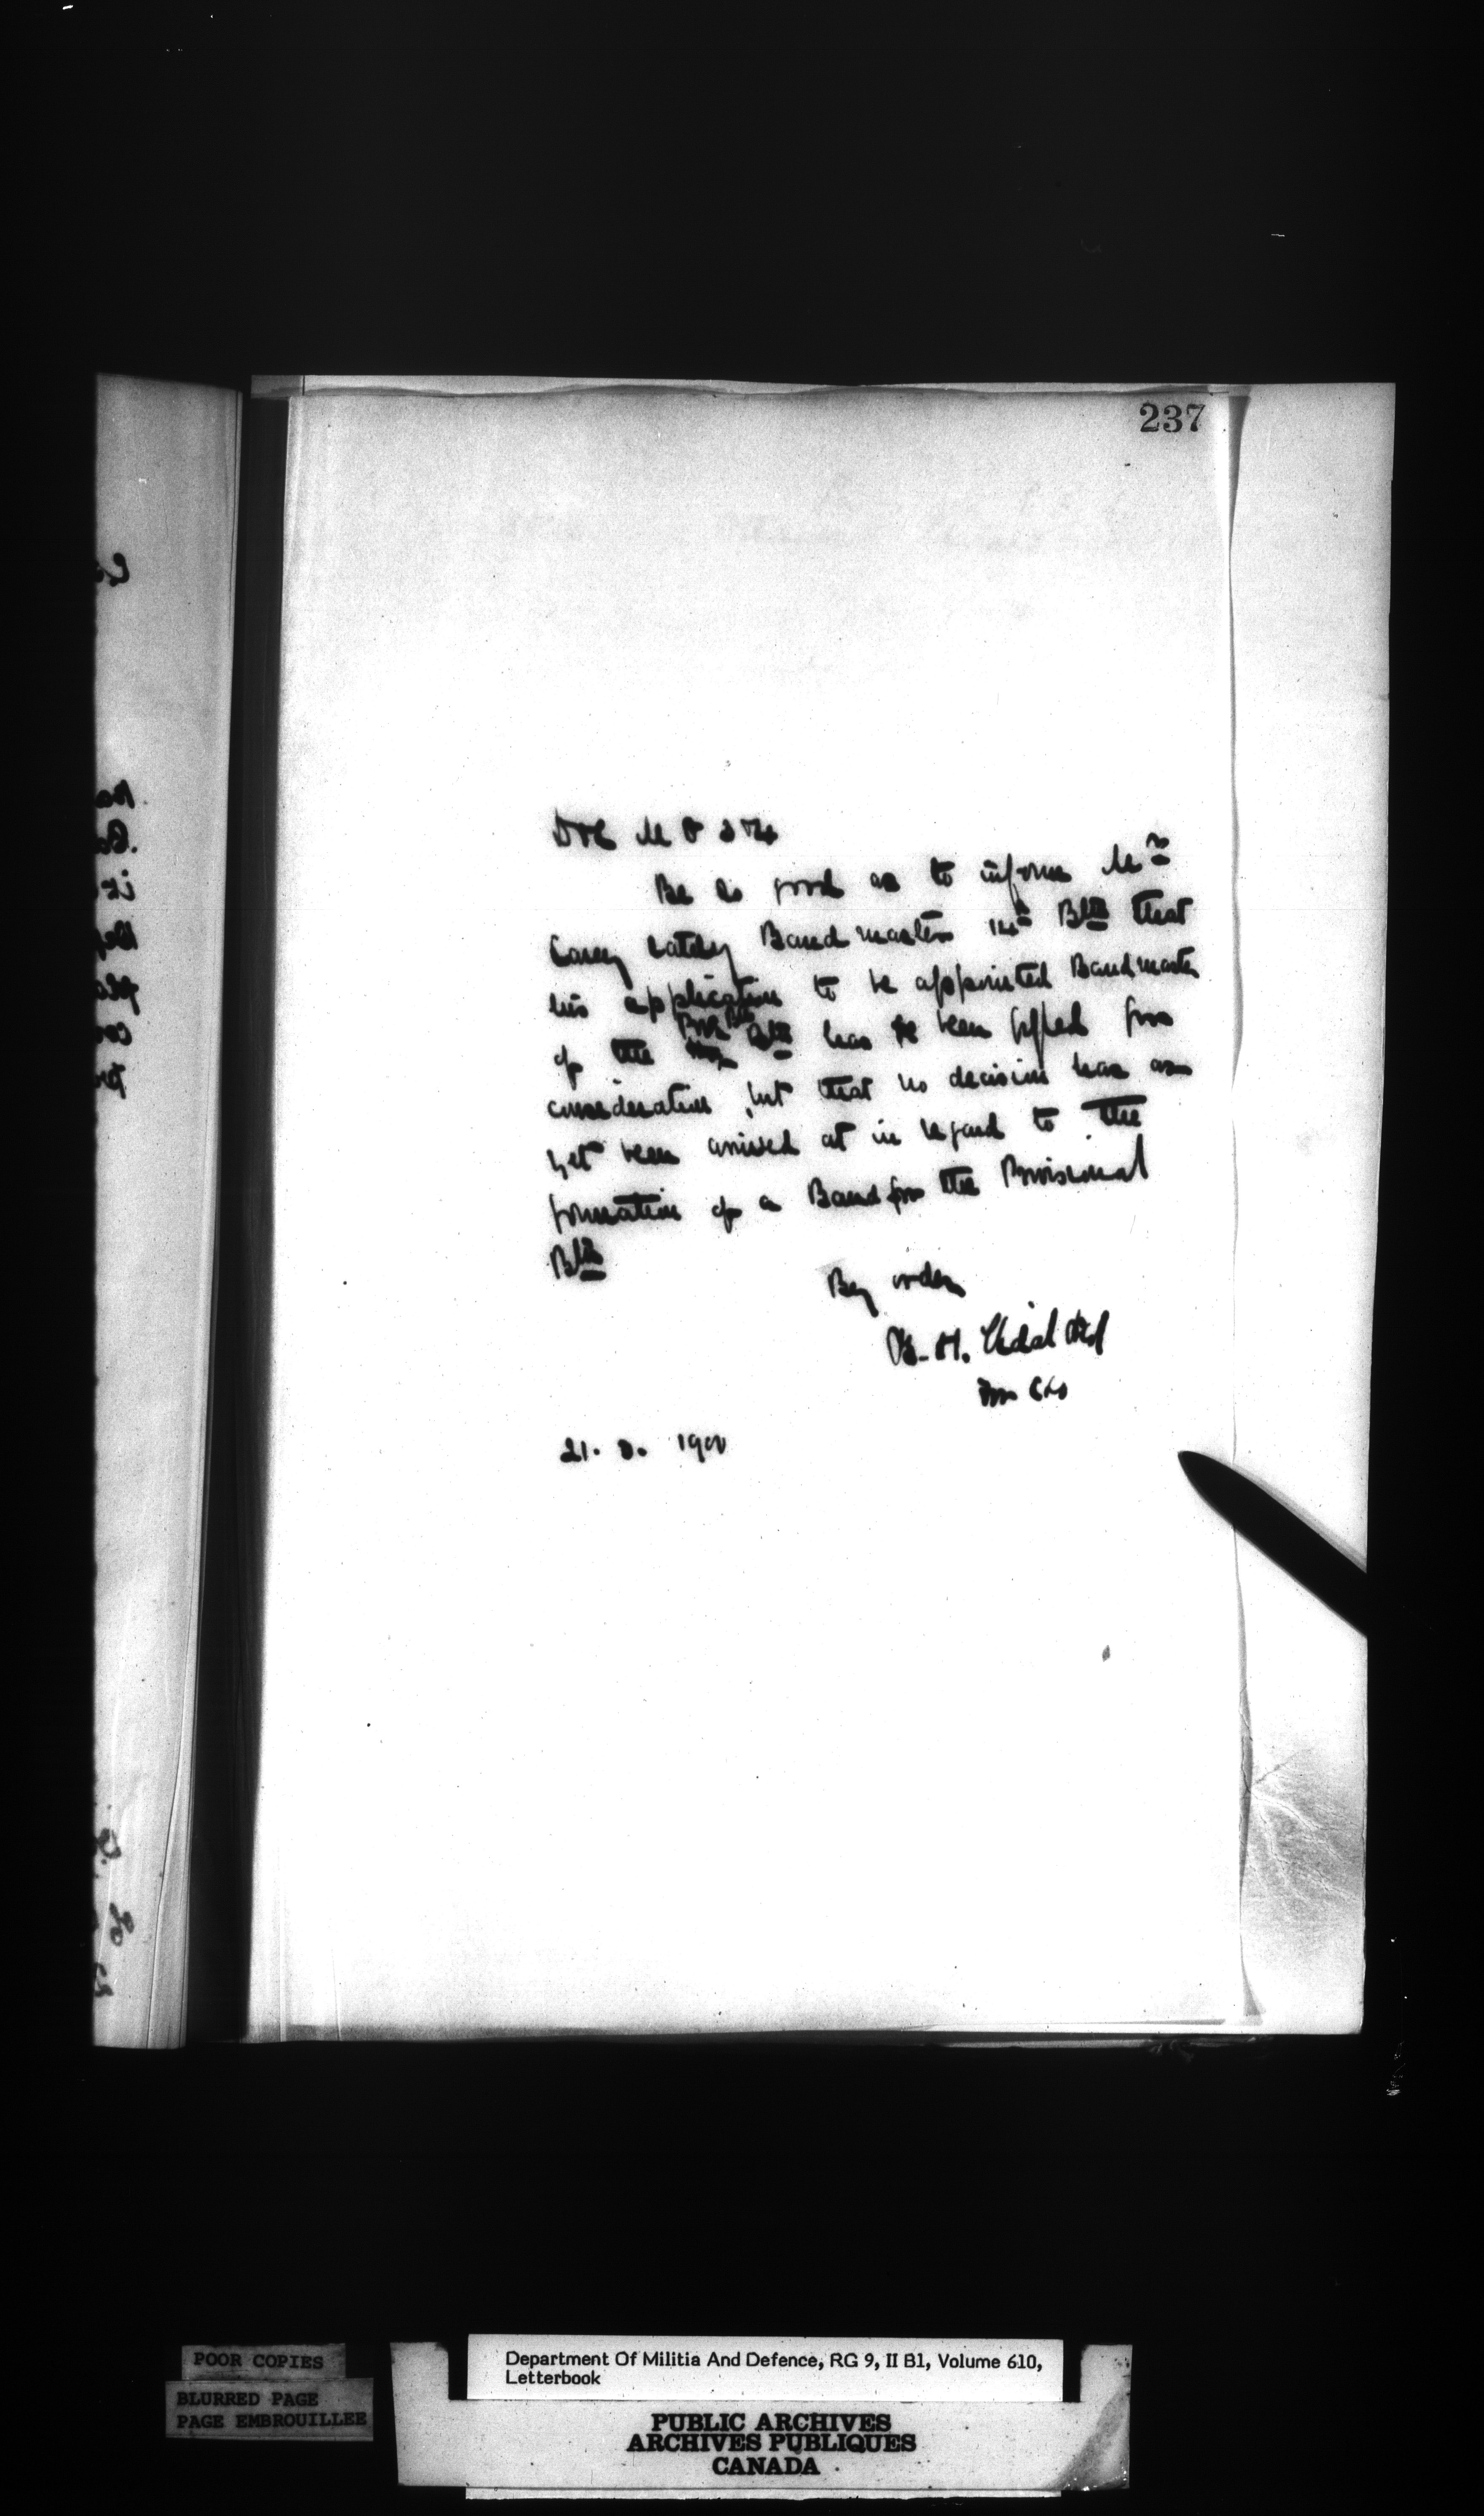 237
DOC M D 3 & 4
Be so good as to inform Mr
Carey lately Bandmaster 14th Bln that
his application to be appointed Bandmaster
of the Prov Bln has been filed for
consideration, but that no decision has as
yet been arrived at in regard to the
formation of a Band for the Provisional
Bln
By order
B. H. Vidal
for CSO
21. 3. 1900
POOR COPIES
BLURRED PAGE
PAGE EMBROUILLEE
Department Of Militia And Defence, RG 9, II B1, Volume 610,
Letterbook
PUBLIC ARCHIVES
ARCHIVES PUBLIQUES
CANADA